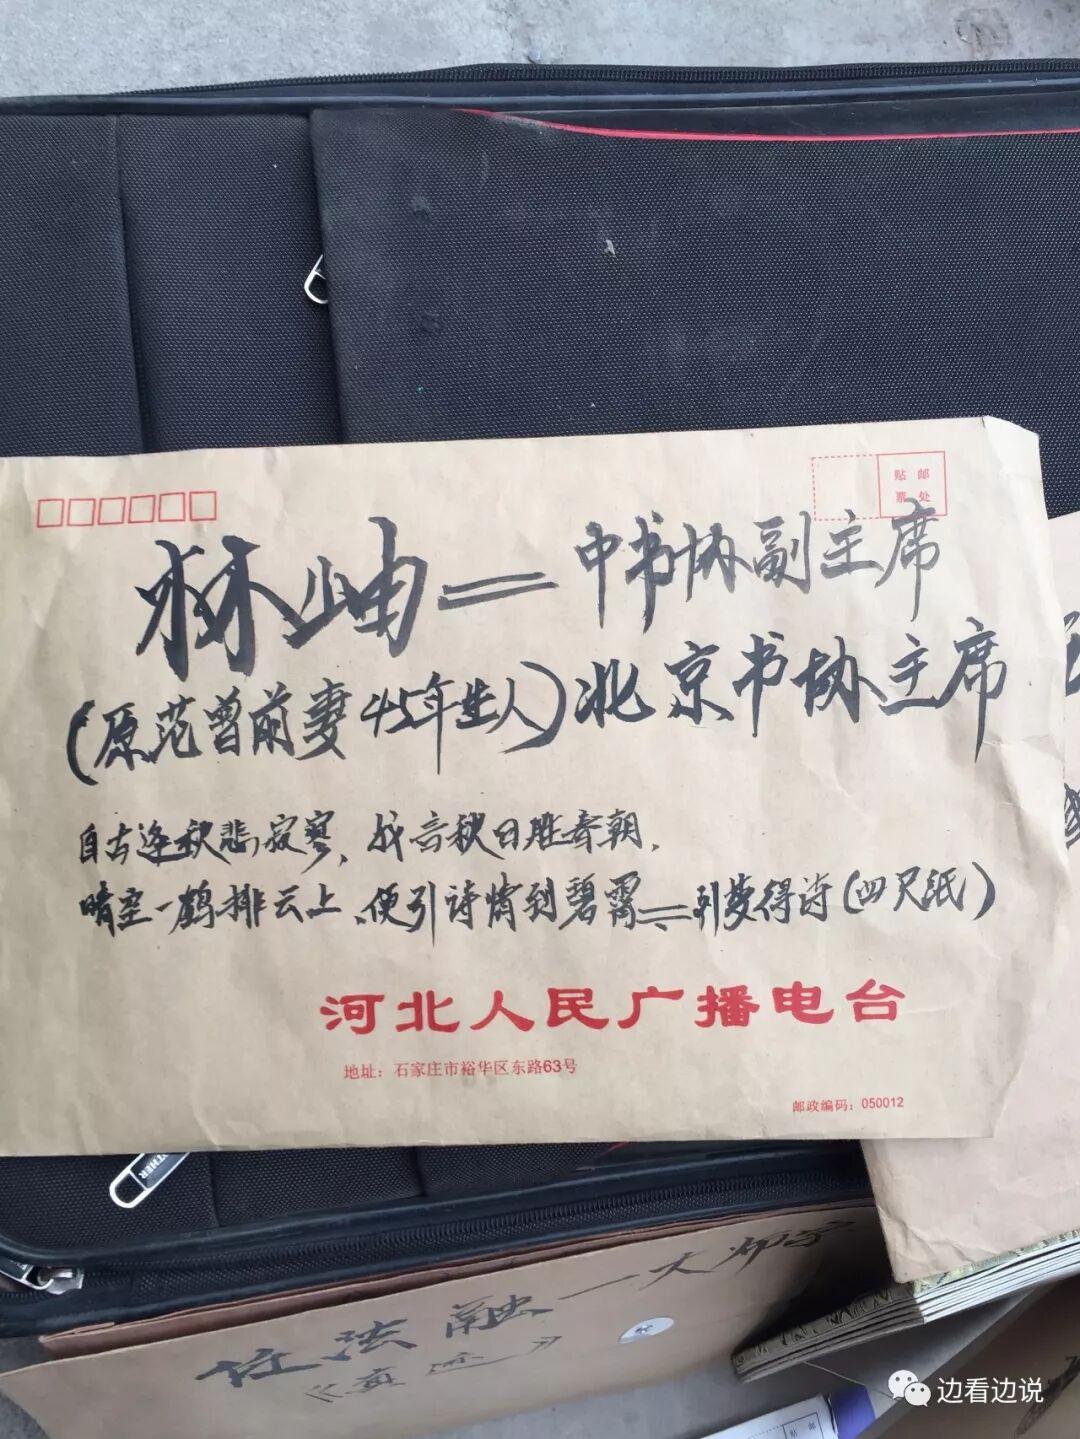 贴邮
票处
林岫=中书协副主席
(原范曾前妻45年生人)北京书协主席
自古逢秋悲寂寥,我言秋日胜春朝,
晴空一鹤排云上,便引诗情到碧霄=刘梦得诗(四尺纸)
河北人民广播电台
地址:石家庄市裕华区东路63号
邮政编码:050012
任法融一大师字
《真迹》
边看边说